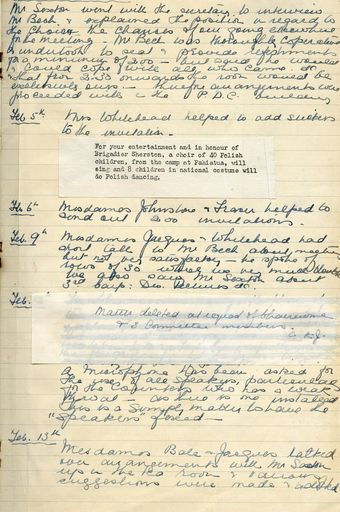 Mr Sexton went with the secretary to interview
Mr Beck & explained the position in regard to
the choice the chances of our going elsewhere
for the meeting - Mr Beck was
undertook to seat & provide refreshments
for a minimum of 300 but said he would
could cope with all who came &
that from 3.30 onwards the room would be
exclusively ours - therefore arrangements were
proceeded with - the P.D.C. building
Feb 5th Mrs Whitehead helped to add stickers
to the invitation -
For your entertainment and in honour of
Brigadier Shorston, a choir of 40 Polish
children, from the camp at Pahiatua, will
sing and 8 children in national costume will
do Polish dancing.
Feb 6th Mesdames Johnstone & helped to
send out 300 invitations.
Feb. 9th Mesdames Jaques & Whitehead had
short talk with Mr Beck about meeting
but not very satisfactory - he spoke of
rows of 30 which we very much
We also saw Mr Sexton about
3rd Corp:
Feb.
Matter deleted at request of Chairwoman
& 3 Committee members.
A microphone has been asked for
the use of all speakers, particularly
for the who has a weak
throat - as there is one installed
this is a simple matter to have the
"speakers" fixed -
Feb. 13th
Mesdames Bale & Jaques talked
over arrangements with Mr Sexton
up in the tea room & various
suggestions were made & added